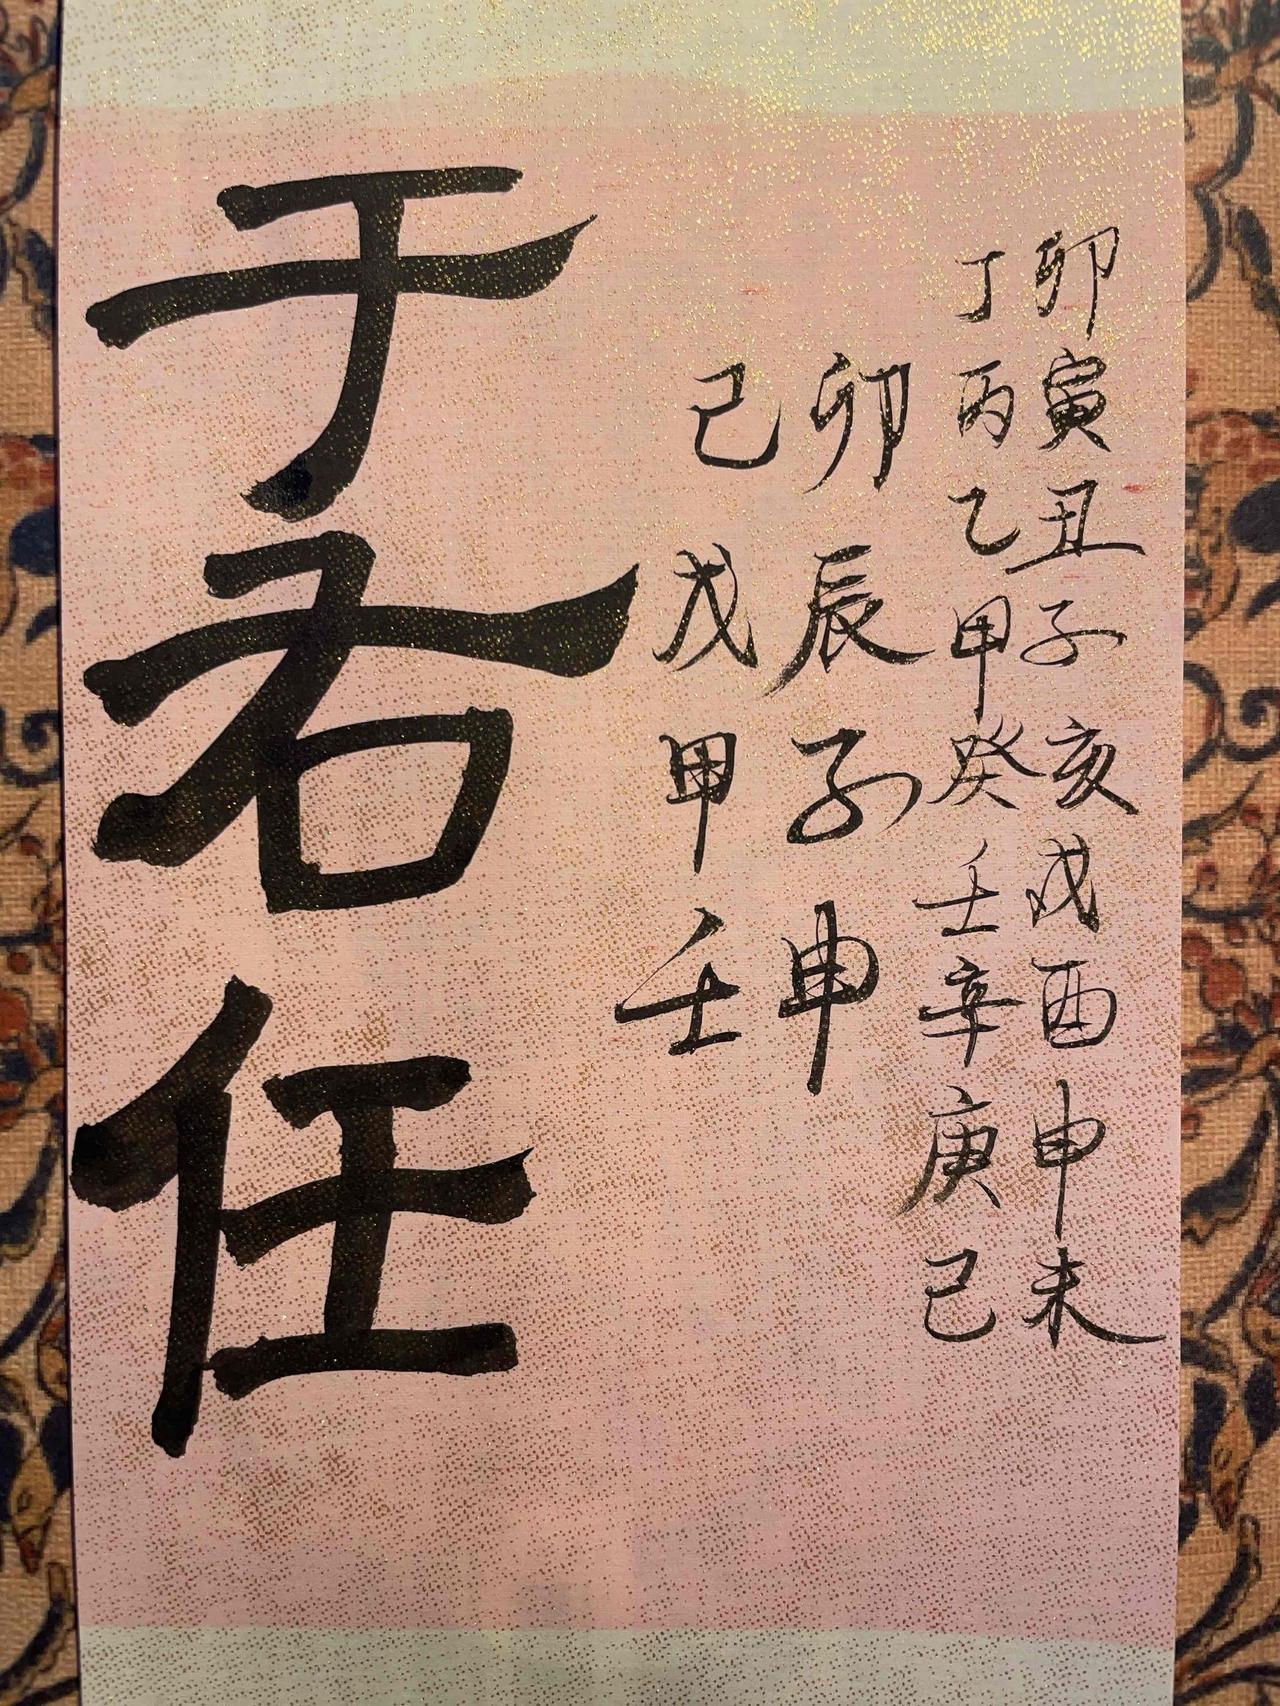 卯寅丑子亥戌酉申未
丁丙乙甲癸壬辛庚己
卯辰子申
己戊甲壬
于君任